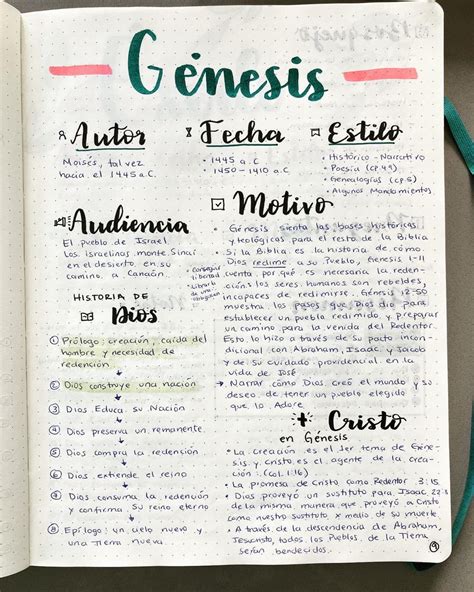 Génesis
Autor
Moisés, tal vez
hacia el 1445 a.C
Fecha
• 1445 a.C
• 1450 - 1410 a.C
Estilo
• Histórico - Narrativo
• Poesía (cp 49)
• Genealogías (cp. 5)
• Algunos Mandamientos
Audiencia
El pueblo de Israel.
Los israelitas, monte Sinaí
en el desierto, en su
camino a Canaán.
Motivo
• Génesis sienta las bases históricas
y teológicas para el resto de la Biblia
• Si la Biblia es la historia de cómo
Dios redime a su Pueblo, Génesis 1-11
cuenta por qué es necesaria la reden-
ción: los seres humanos son rebeldes,
incapaces de redimirse. Génesis 12-50
muestra los pasos que Dios dio para
establecer un pueblo redimido y preparar
un camino para la venida del Redentor.
Esto lo hizo a través de su pacto incon-
dicional con Abraham, Isaac, y Jacob
y de su cuidado providencial en la
vida de José
→ Narrar cómo Dios creó el mundo y su
deseo de tener un pueblo elegido
que lo Adore
HISTORIA DE
Dios
1 Prólogo: creación, caída del
hombre y necesidad de
redención
2 Dios construye una nación
3 Dios Educa su Nación
4 Dios preserva un remanente
5 Dios compra la redención
6 Dios extiende el reino
7 Dios consuma la redención
y confirma su reino eterno
8 Epílogo: un cielo nuevo y
una Tierra nueva
Cristo
en Génesis
• La creación es el 1er tema de Géne-
sis y cristo es el agente de la crea-
ción. (Col. 1:16)
• La promesa de Cristo como Redentor 3:15
• Dios proveyó un sustituto para Isaac 22:8
de la misma manera que proveyó a Cristo
como nuestro sustituto x medio de su muerte.
• A través de la descendencia de Abraham,
Jesucristo, todos los Pueblos de la Tierra
serán bendecidos.